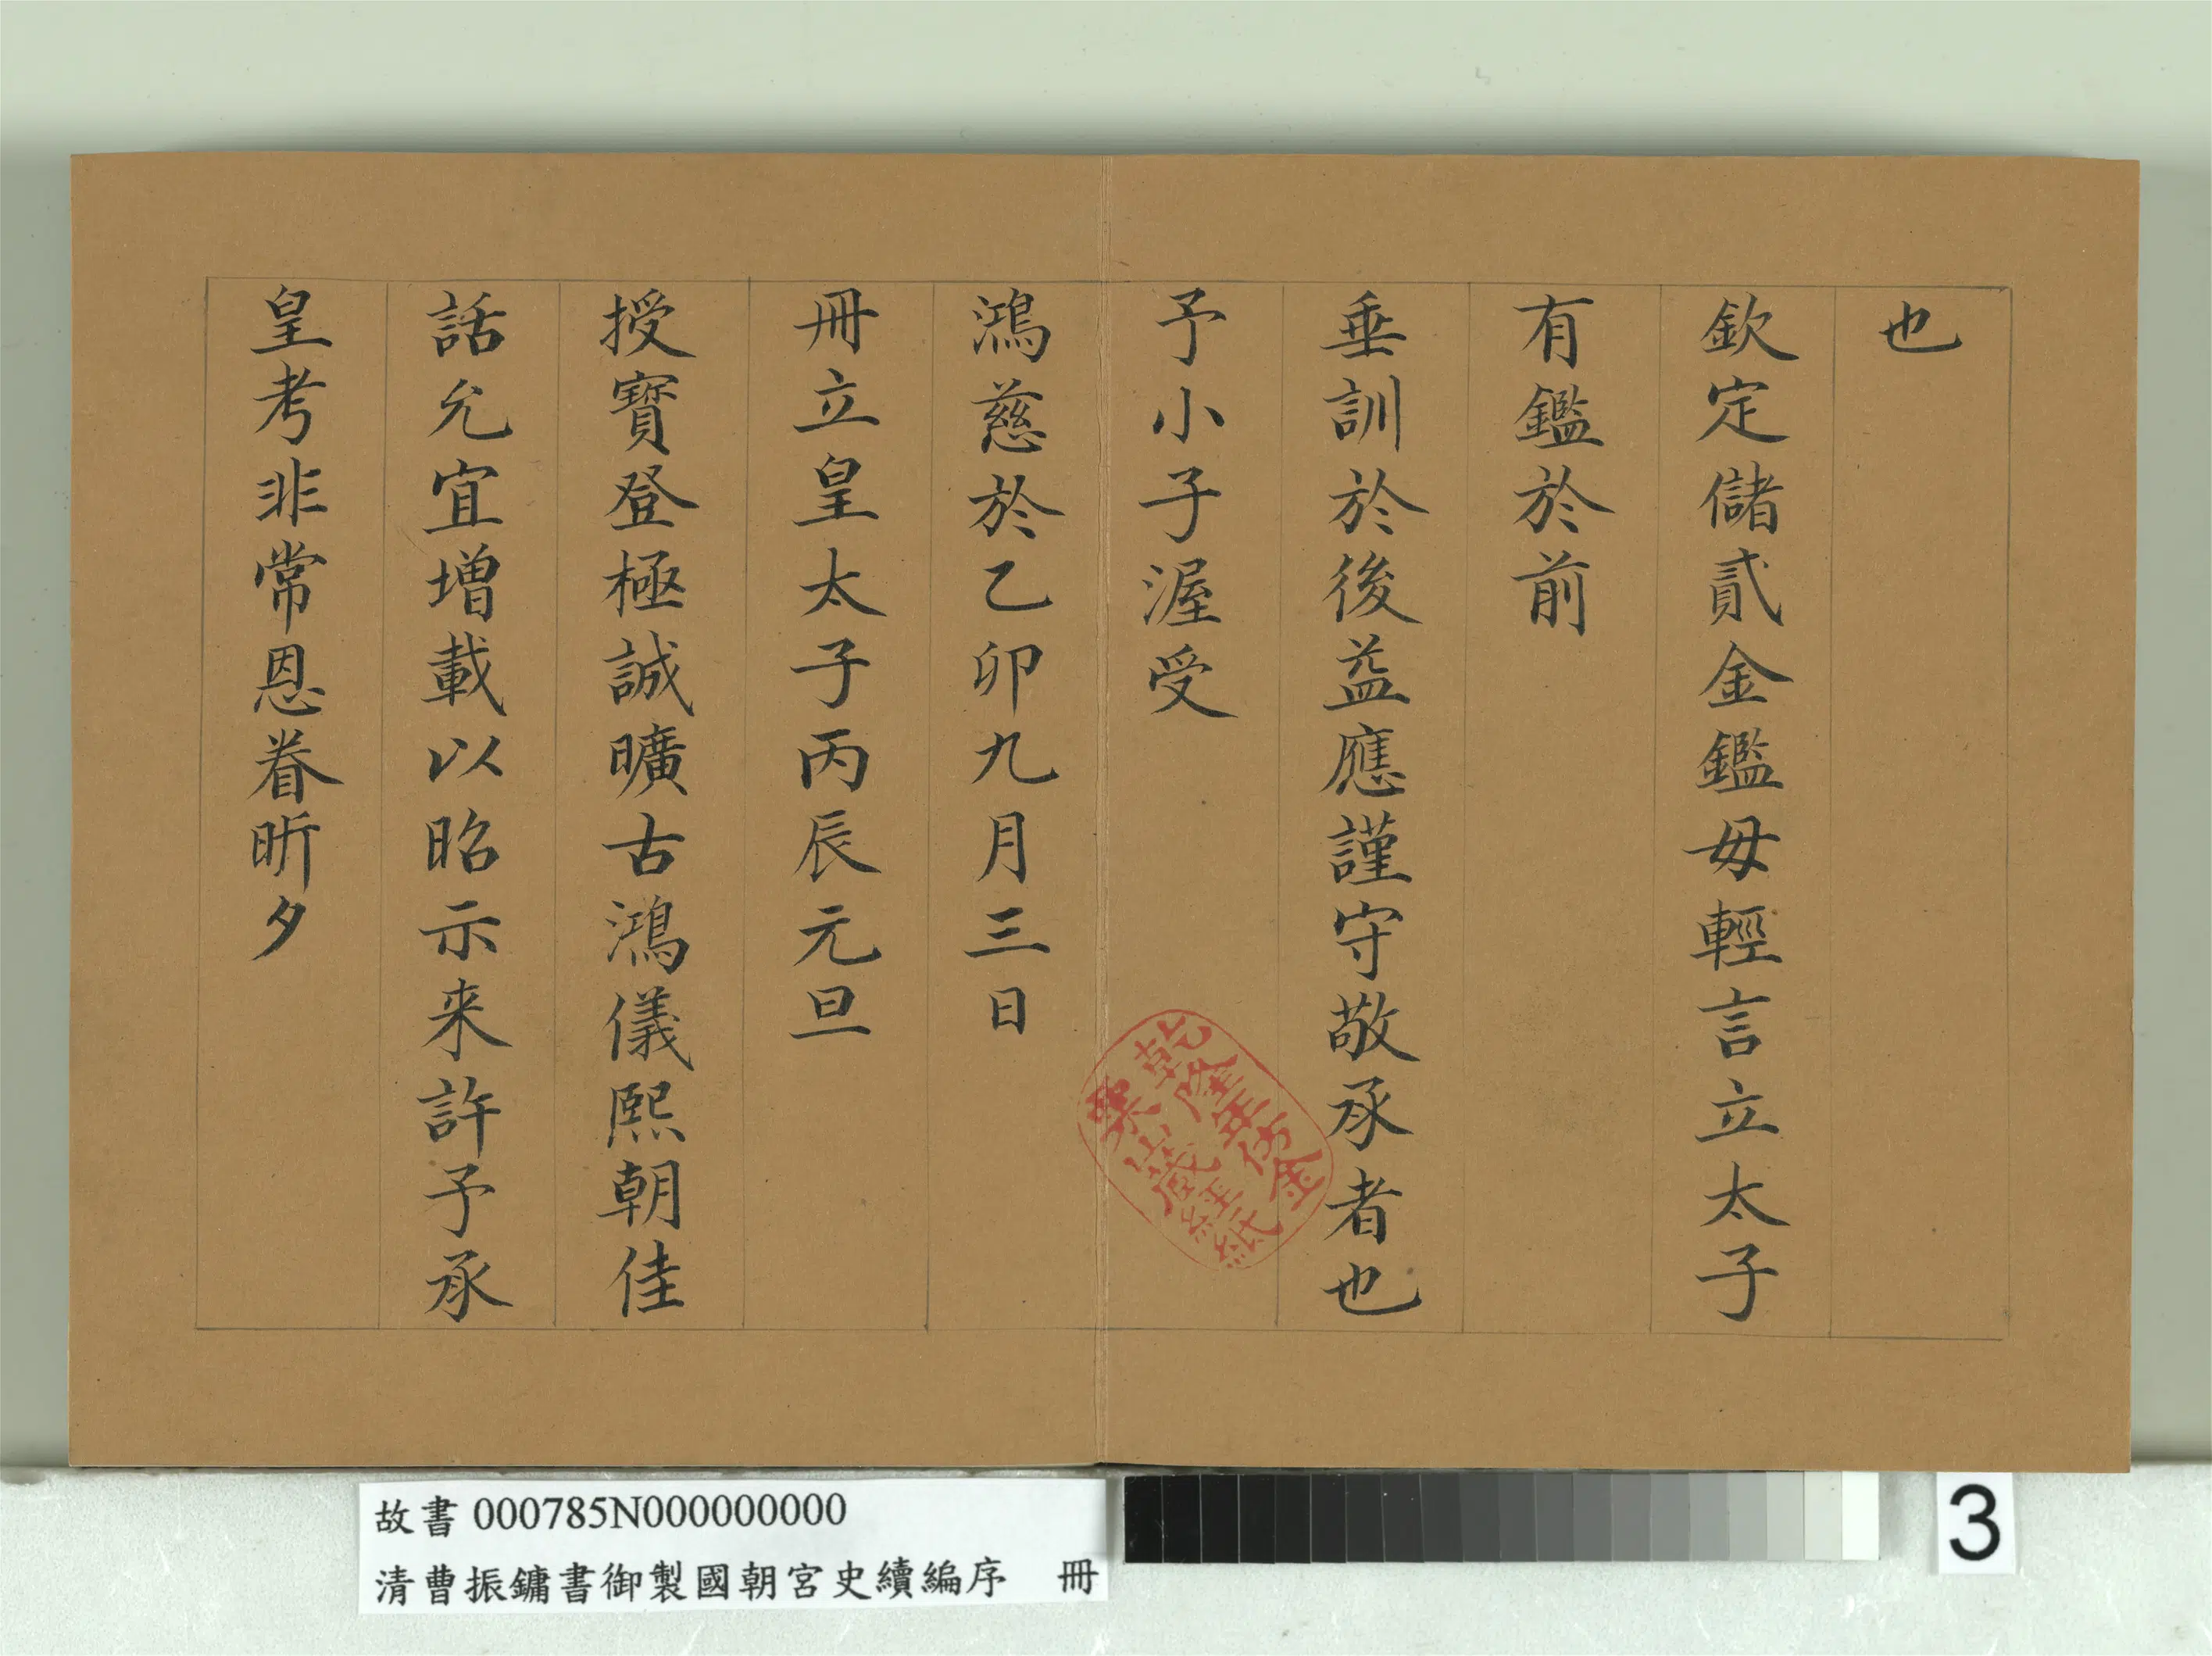 也
欽定儲貳金鑑毋輕言立太子
有鑑於前
垂訓於後益應謹守敬承者也
予小子渥受
鴻慈於乙卯九月三日
冊立皇太子丙辰元旦
授寶登極誠曠古鴻儀熙朝佳
話允宜增載以昭示来許予承
皇考非常恩眷昕夕
乾隆年仿金
粟山藏經紙
故書 000785N000000000
清曹振鏞書御製國朝宮史續編序 冊
3